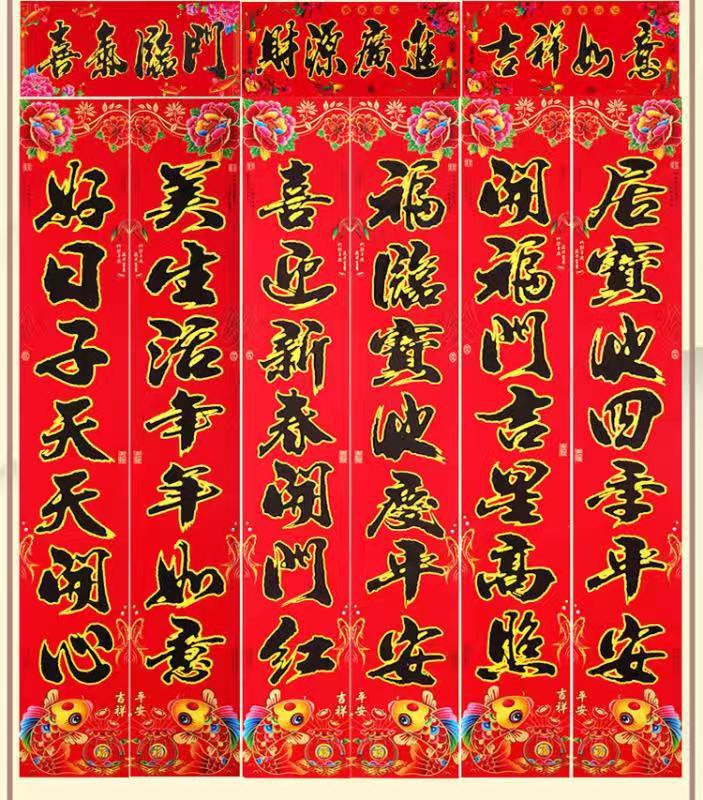 喜氣臨門
財源廣進
吉祥如意
好日子天天開心
美生活年年如意
喜迎新春開門紅
福臨寶地慶平安
開福門吉星高照
居寶地四季平安
吉祥
平安
吉祥
平安
吉祥
平安